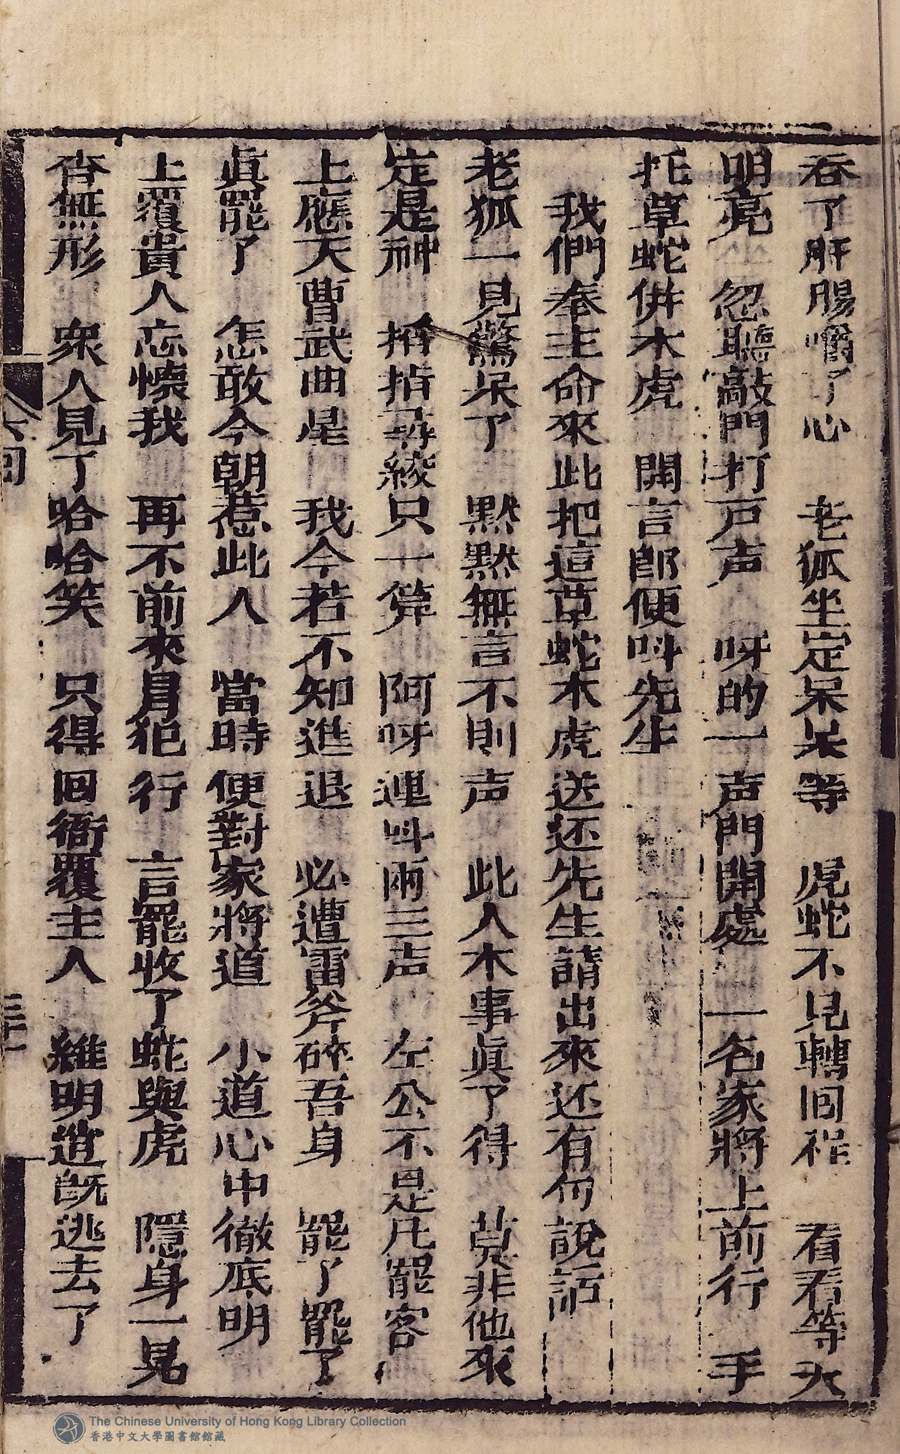 吞了肝腸嚼了心 老狐坐定呆呆等 虎蛇不見轉回程 看看等大
明亮 忽聽敲門打戶声 呀的一声門開處 一名家將上前行 手
托草蛇併木虎 開言郎便呌先生
我們奉主命來此把這草蛇木虎送还先生請出來还有何說話
老狐一見驚呆了 默默無言不則声 此人木事眞了得 莫非他來
定是神 搯指尋綾只一算 阿呀連呌兩三声 左公不是凡罷客
上應天曹武曲星 我今若不知進退 必遭雷斧碎吾身 罷了罷了
眞罷了 怎敢今朝惹此人 當時便對家將道 小道心中徹底明
上覆貴人忘懷我 再不前來冐犯行 言罷收了蛇與虎 隱身一晃
杳無形 衆人見了哈哈笑 只得回衙覆主人 維明道旣逃去了
六回
三十一
The Chinese University of Hong Kong Library Collection
香港中文大學圖書館館藏